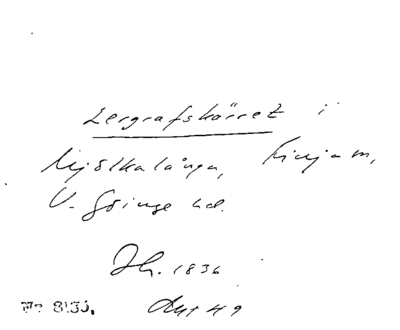 Lergrafskärret i
Mjölkalånga, Finja sn,
V. Göinge hd.
Jh. 1836
No 8130.